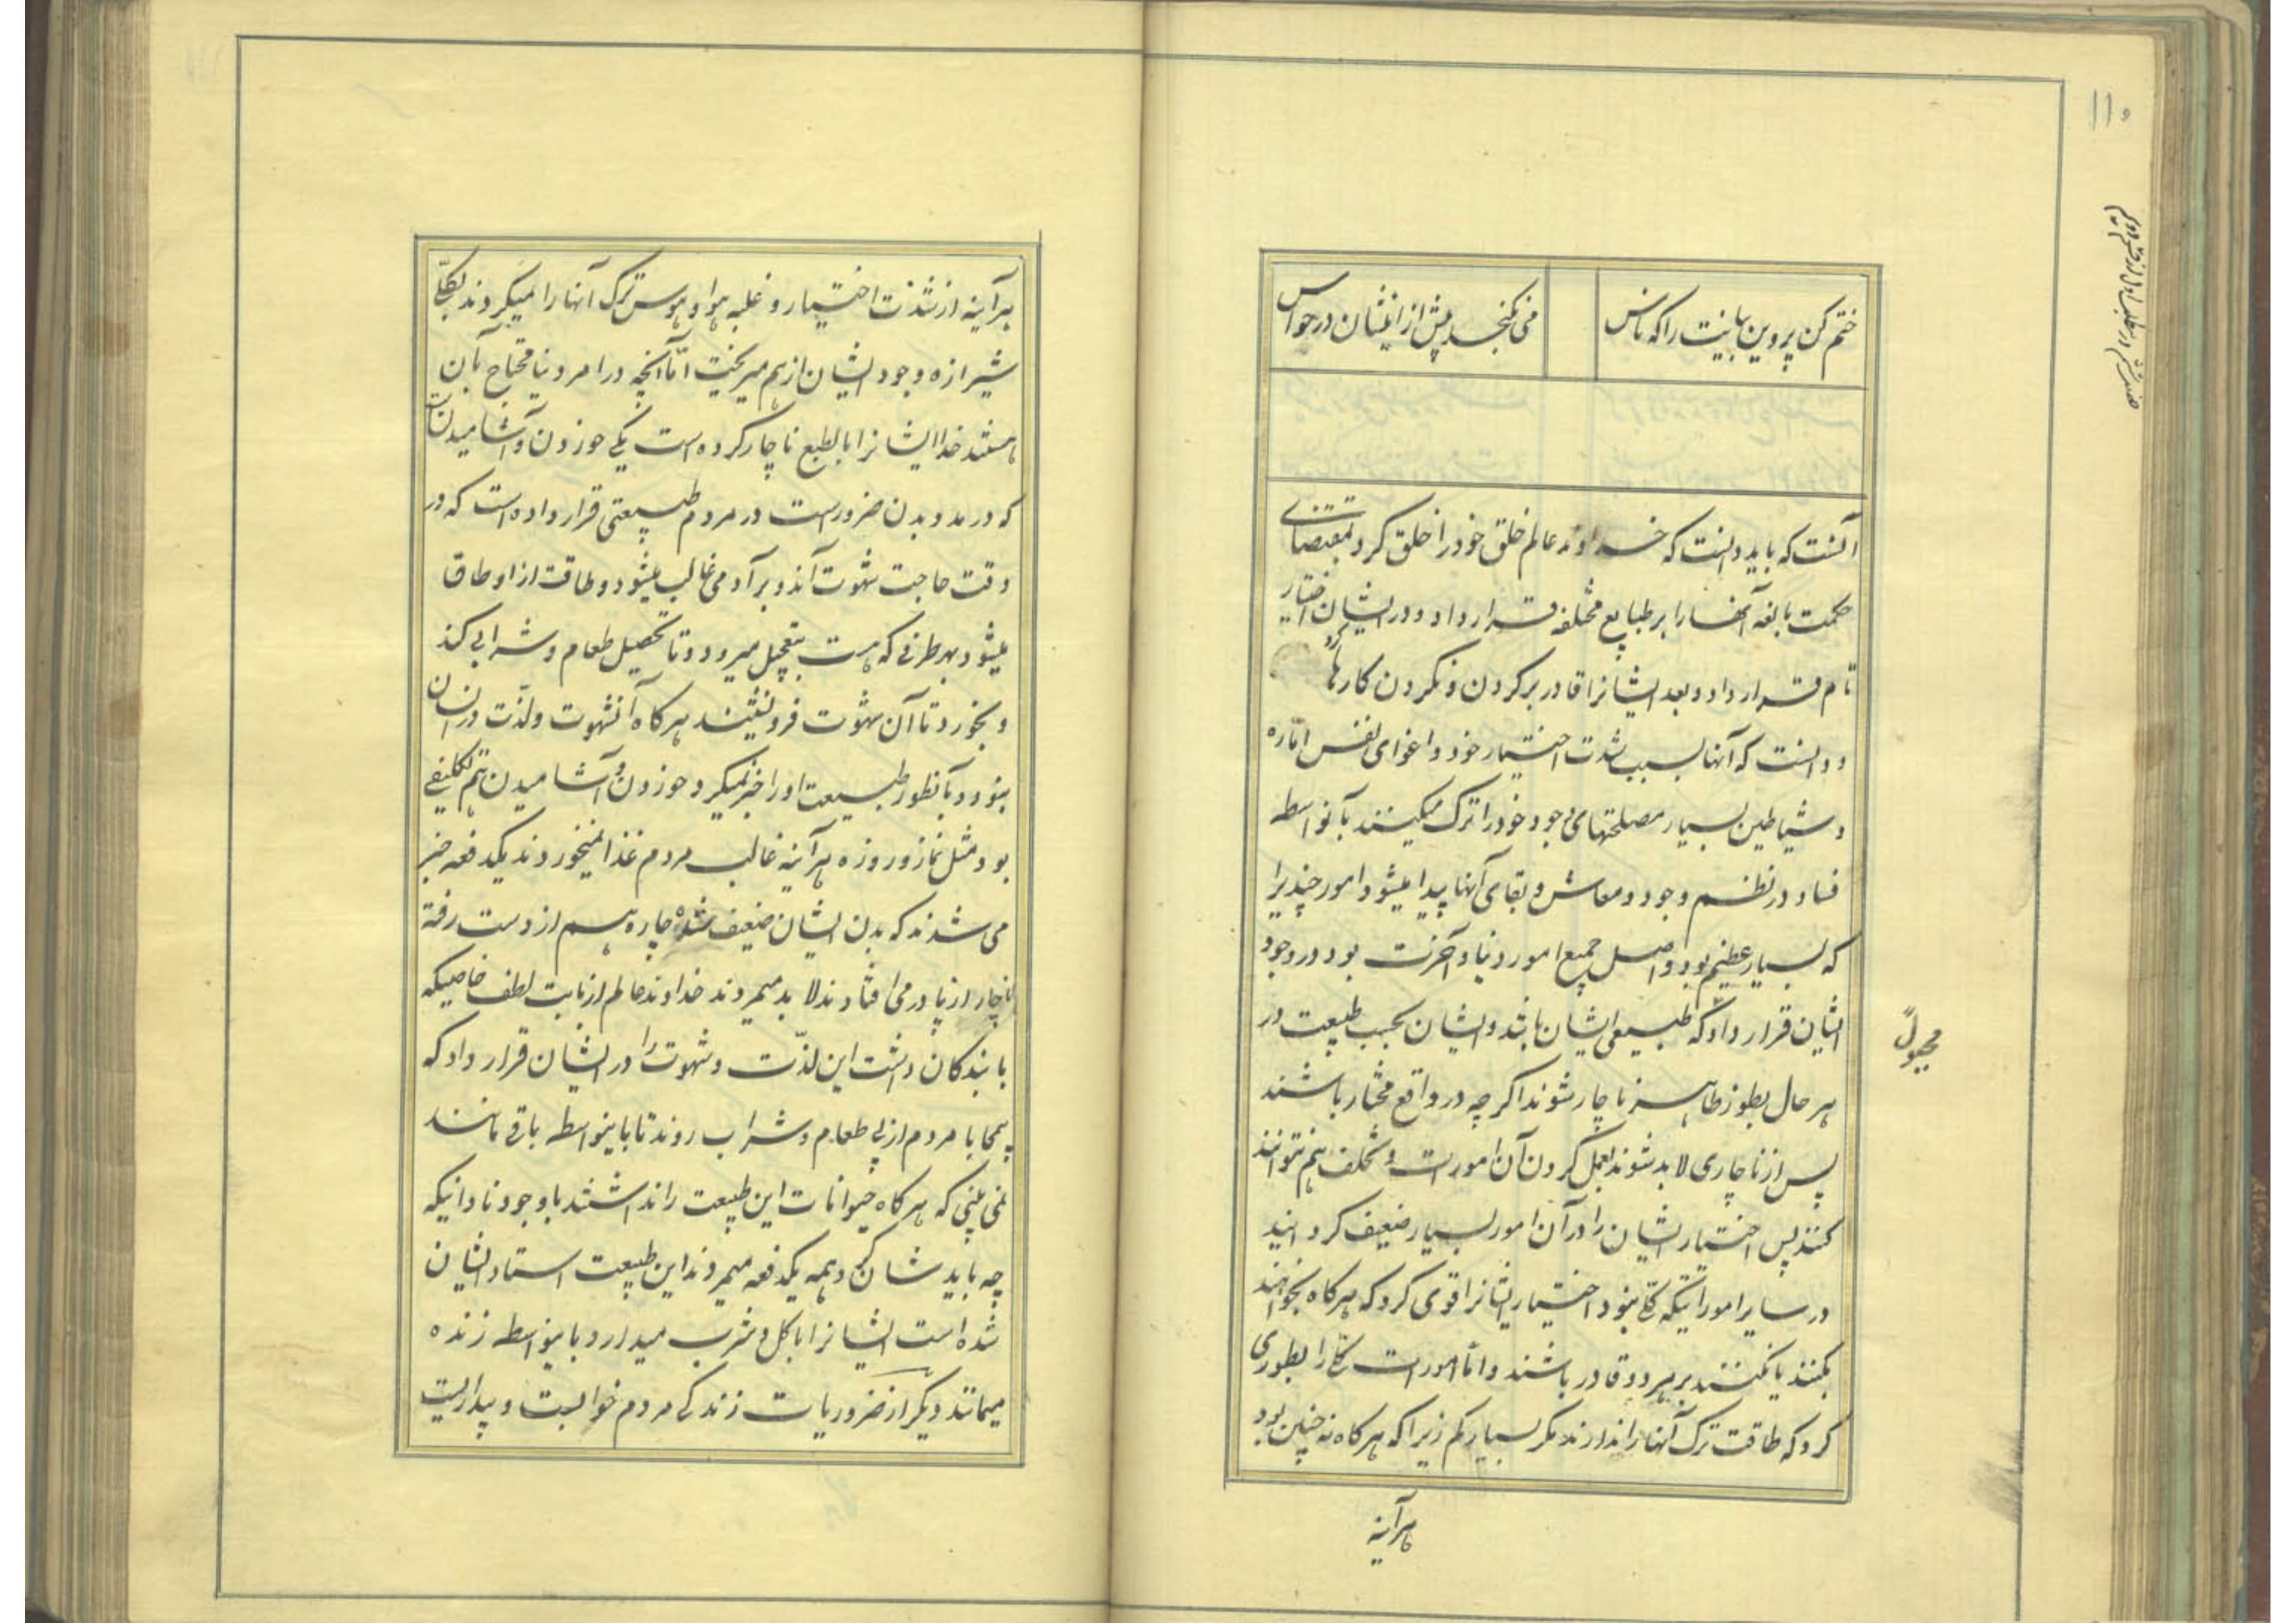 ۱۱۰
ختم کن پروین بیانت را که ناس
می نگنجد بیش از اینشان در حواس
آنست که باید دانست که خداوند عالم خلق خود را خلق کرد بمقتضای
حکمت بالغه آنها را بر طبایع مختلفه قرار داد و در ایشان اختیار
تام قرار داد و بعد ایشانرا قادر بر کردن و نکردن کارها کرد
و دانست که آنها بسبب شدت اختیار خود و اغوای نفس امّاره
و شیاطین بسیار مصلحتهای وجود خود را ترک میکنند بآنواسطه
فساد در نظم وجود و معاش و بقای آنها پیدا میشود امور چندیرا
که بسیار عظیم بود و اصل جمیع امور دنیا و آخرت بود در وجود
ایشان قرار داد که طبیعی ایشان باشد و ایشان بحسب طبیعت در
هر حال بطور ظاهر ناچار شوند اگر چه در واقع مختار باشند
پس از ناچاری لابد شوند بعمل کردن آن امورات و تخلف هم نتوانند
کنند پس اختیار ایشان را در آن امور بسیار ضعیف کردانید
در سایر امورایتکه کلی نبود اختیار ایشانرا قوی کرد که هرکاه بخواهند
بکنند یا نکنند بر هر دو قادر باشند و امّا امورات کلی را بطوری
کرد که طاقت ترک آنها را ندارند مکر بسیار کم زیرا که هرکاه نه چنین بود
هرآینه
هرآینه از شدت اختیار و غلبه هوا و هوس ترک آنها را میکردند بکلّی
شیرازه وجود ایشان از هم میریخت امّا آنچه در امر دنیا محتاج بآن
هستند خدا ایشانرا بالطبع ناچار کرده است یکی خوردن و آشامیدنست
که در مدد بدن ضرور است در مردم طبیعتی قرار داده است که در
وقت حاجت شهوت آندو بر آدمی غالب میشود و طاقت از او طاق
میشود بهر طرفی که هست بتعجیل میرود و تا تحصیل طعام و شرابی کند
و بخورد تا آن شهوت فرو نشیند هرکاه آنشهوت و لذّت در انسان
نبود و بآنطور طبیعت او را خبر نمیکرد و خوردن و آشامیدن هم تکلیفی
بود مثل نماز و روزه هرآینه غالب مردم غذا نمیخوردند یکدفعه خبر
می شدند که بدن ایشان ضعیف شده چاره هم از دست رفته
ناچار از پا در می افتادند لابد میمردند خداوند عالم از بابت لطف خاصیکه
با بندکان داشت این لذّت و شهوت را در ایشان قرار داد که
بیمحابا مردم از پی طعام و شراب روند تا باینواسطه باقی مانند
نمی بینی که هرکاه حیوانات این طبیعت را نداشتند با وجود نادانیکه
چه باید شان کرد همه یکدفعه میمردند این طبیعت استاد ایشان
شده است ایشانرا باکل و شرب میدارد باینواسطه زنده
میمانند دیکر از ضروریات زندکی مردم خوابست و بیداریست